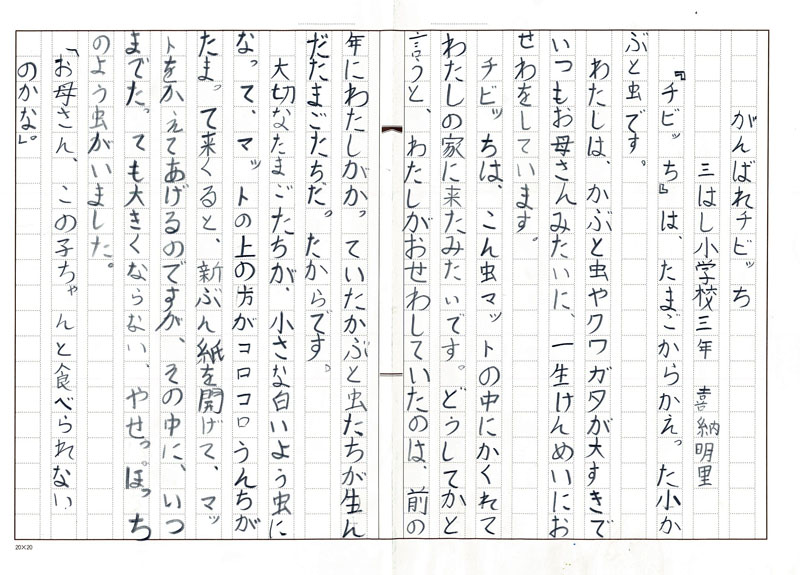 がんばれチビっち
三はし小学校三年　喜納明里
『チビっち』は、たまごからかえった小か
ぶと虫です。
わたしは、かぶと虫やクワガタが大すきで
いつもお母さんみたいに、一生けんめいにお
せわをしています。
チビっちは、こん虫マットの中にかくれて
わたしの家に来たみたいです。どうしてかと
言うと、わたしがおせわしていたのは、前の
年にわたしがかっていたかぶと虫たちが生ん
だたまごたちだ。たからです。
大切なたまごたちが、小さな白いよう虫に
なって、マットの上の方がコロコロうんちが
たまって来くると、新ぶん紙を開げて、マッ
トをかえてあげるのですが、その中に、いつ
までたっても大きくならない、やせっぽっち
のよう虫がいました。
「お母さん、この子ちゃんと食べられない
のかな」。
20×20